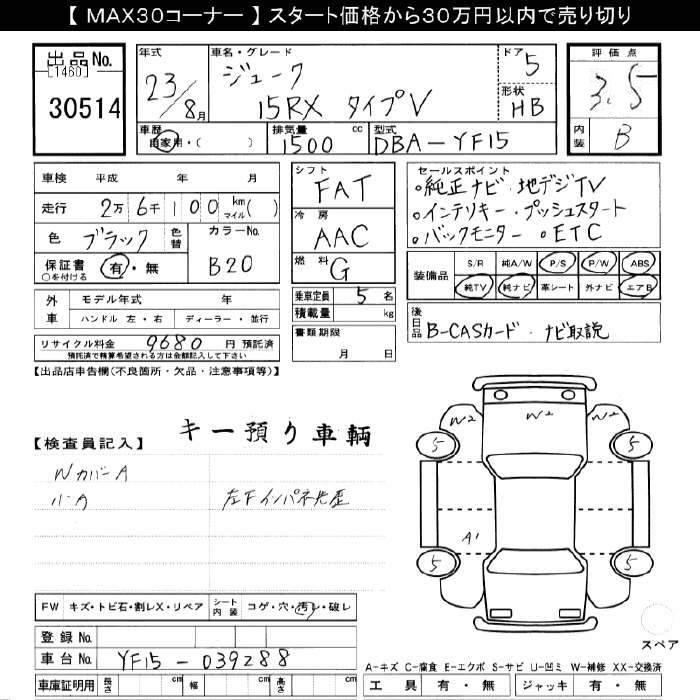 【 MAX30コーナー 】スタート価格から30万円以内で売り切り
出品No.
[1460]
30514
年式
23/8月
車名・グレード
ジューク
15RX タイプV
ドア
5
形状
HB
評価点
3.5
内装
B
車歴
自家用・( )
排気量
1500 cc
型式
DBA-YF15
車検 平成 年 月
走行 2万 6千 1 0 0 km マイル ( )
色 ブラック 色替
カラーNo.
B20
保証書 有・無
○を付ける
シフト
FAT
冷房
AAC
燃料
G
セールスポイント
・純正ナビ・地デジTV
・インテリキー・プッシュスタート
・バックモニター・ETC
装備品
S/R 純A/W P/S P/W ABS
純TV 純ナビ 革シート 外ナビ エアB
外車
モデル年式 年
ハンドル 左・右 ディーラー・並行
乗車定員 5 名
積載量 kg
書類期限
月 日
後日品
B-CASカード・ナビ取説
リサイクル料金 9680 円 預託済
預託済で精算希望される方は金額記入して下さい
【出品店申告欄(不良箇所・欠品・注意事項等)】
キー預り車輌
【検査員記入】
Nカバー A
ハ A
W2
W2
W2
5
5
A1
5
5
スペア
FW キズ・トビ石・割レX・リペア
シート内装 コゲ・穴・汚レ・破レ
登録No.
車台No. YF15-039288
車庫証明用 長さ cm 幅 cm 高さ cm
A-キズ C-腐食 E-エクボ S-サビ U-凹ミ W-補修 XX-交換済
工具 有・無 ジャッキ 有・無